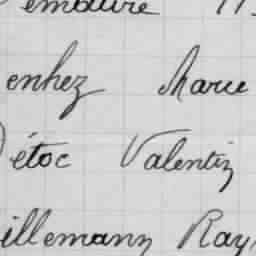 emaure 11
enhez Marie
étoc Valentin
illemann Ray